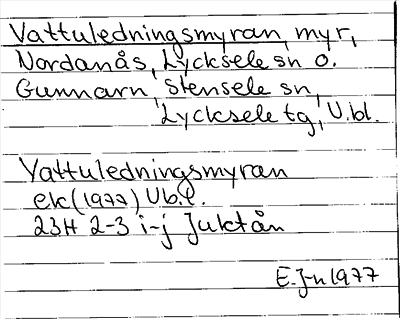 Vattuledningsmyran, myr,
Nordanås, Lycksele sn o.
Gunnarn, Stensele sn,
Lycksele tg, U.bl.
Vattuledningsmyran
ek (1977) Ubl.
23H 2-3 i-j Juktån
E.J-n 1977